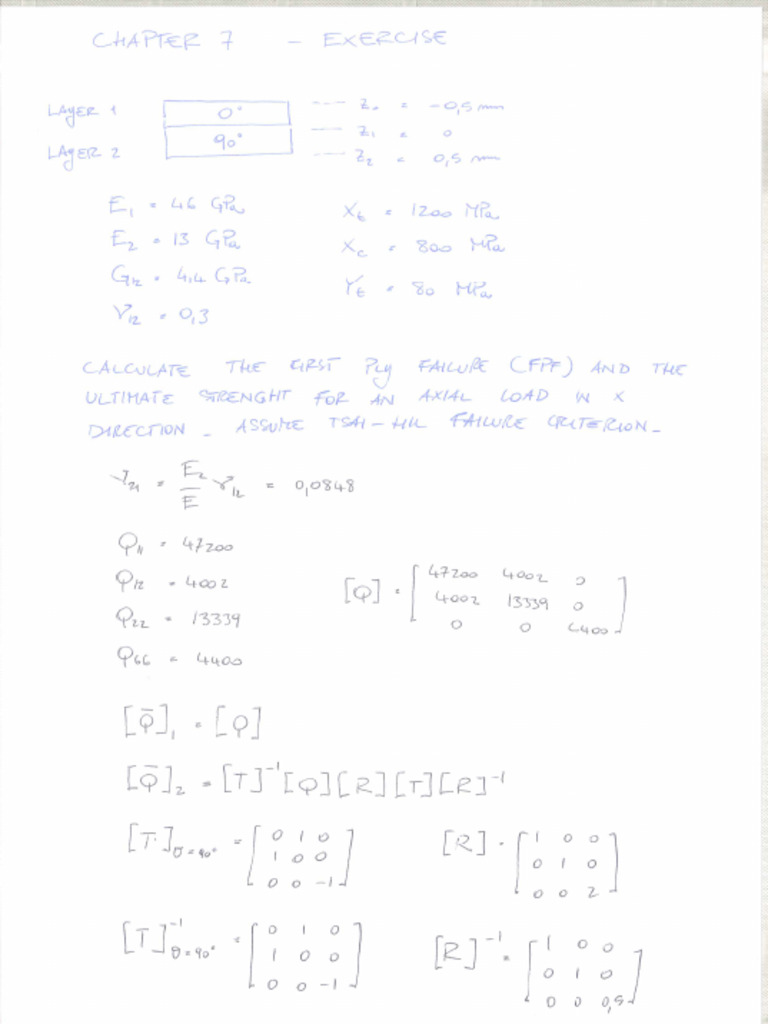 CHAPTER 7 - EXERCISE
LAYER 1 0° Z₀ = -0,5 mm
Z₁ = 0
LAYER 2 90° Z₂ = 0,5 mm
E₁ = 46 GPa Xt = 1200 MPa
E₂ = 13 GPa Xc = 800 MPa
G₁₂ = 4,4 GPa Yt = 80 MPa
ν₁₂ = 0,3
CALCULATE THE FIRST PLY FAILURE (FPF) AND THE
ULTIMATE STRENGHT FOR AN AXIAL LOAD IN X
DIRECTION - ASSUME TSAI-HILL FAILURE CRITERION -
ν₂₁ = E₂/E ν₁₂ = 0,0848
Q₁₁ = 47200
Q₁₂ = 4002
Q₂₂ = 13339
Q₆₆ = 4400
[Q] = [47200 4002 0
4002 13339 0
0 0 4400]
[Q̄]₁ = [Q]
[Q̄]₂ = [T]⁻¹[Q][R][T][R]⁻¹
[T]θ=90° = [0 1 0
1 0 0
0 0 -1]
[R] = [1 0 0
0 1 0
0 0 2]
[T]⁻¹θ=90° = [0 1 0
1 0 0
0 0 -1]
[R]⁻¹ = [1 0 0
0 1 0
0 0 0,5]